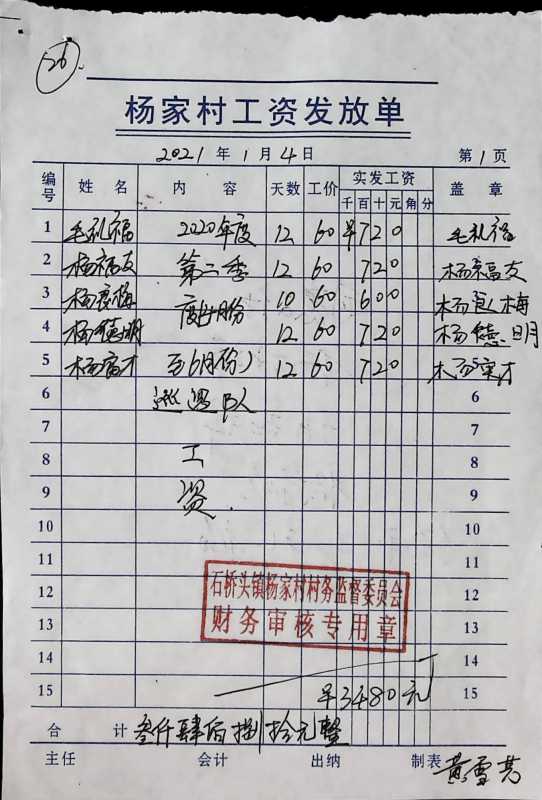 26
杨家村工资发放单
2021年1月4日 第1页
编号 姓名 内容 天数 工价 实发工资 盖章
千百十元角分
1 毛礼福 2020年度 12 60 ¥720 毛礼福
2 杨福友 第二季 12 60 720 杨福友
3 杨 梅 度(4月份 10 60 600 杨 梅
4 杨德明 12 60 720 杨德明
5 杨 才 至6月份) 12 60 720 杨 才
6 巡逻队 6
7 7
8 工 8
9 资. 9
10 10
11 11
12 12
13 13
14 14
15 ¥3480元 15
石桥头镇杨家村村务监督委员会
财务审核专用章
合计 叁仟肆佰捌拾元整
主任 会计 出纳 制表 黄雪芳